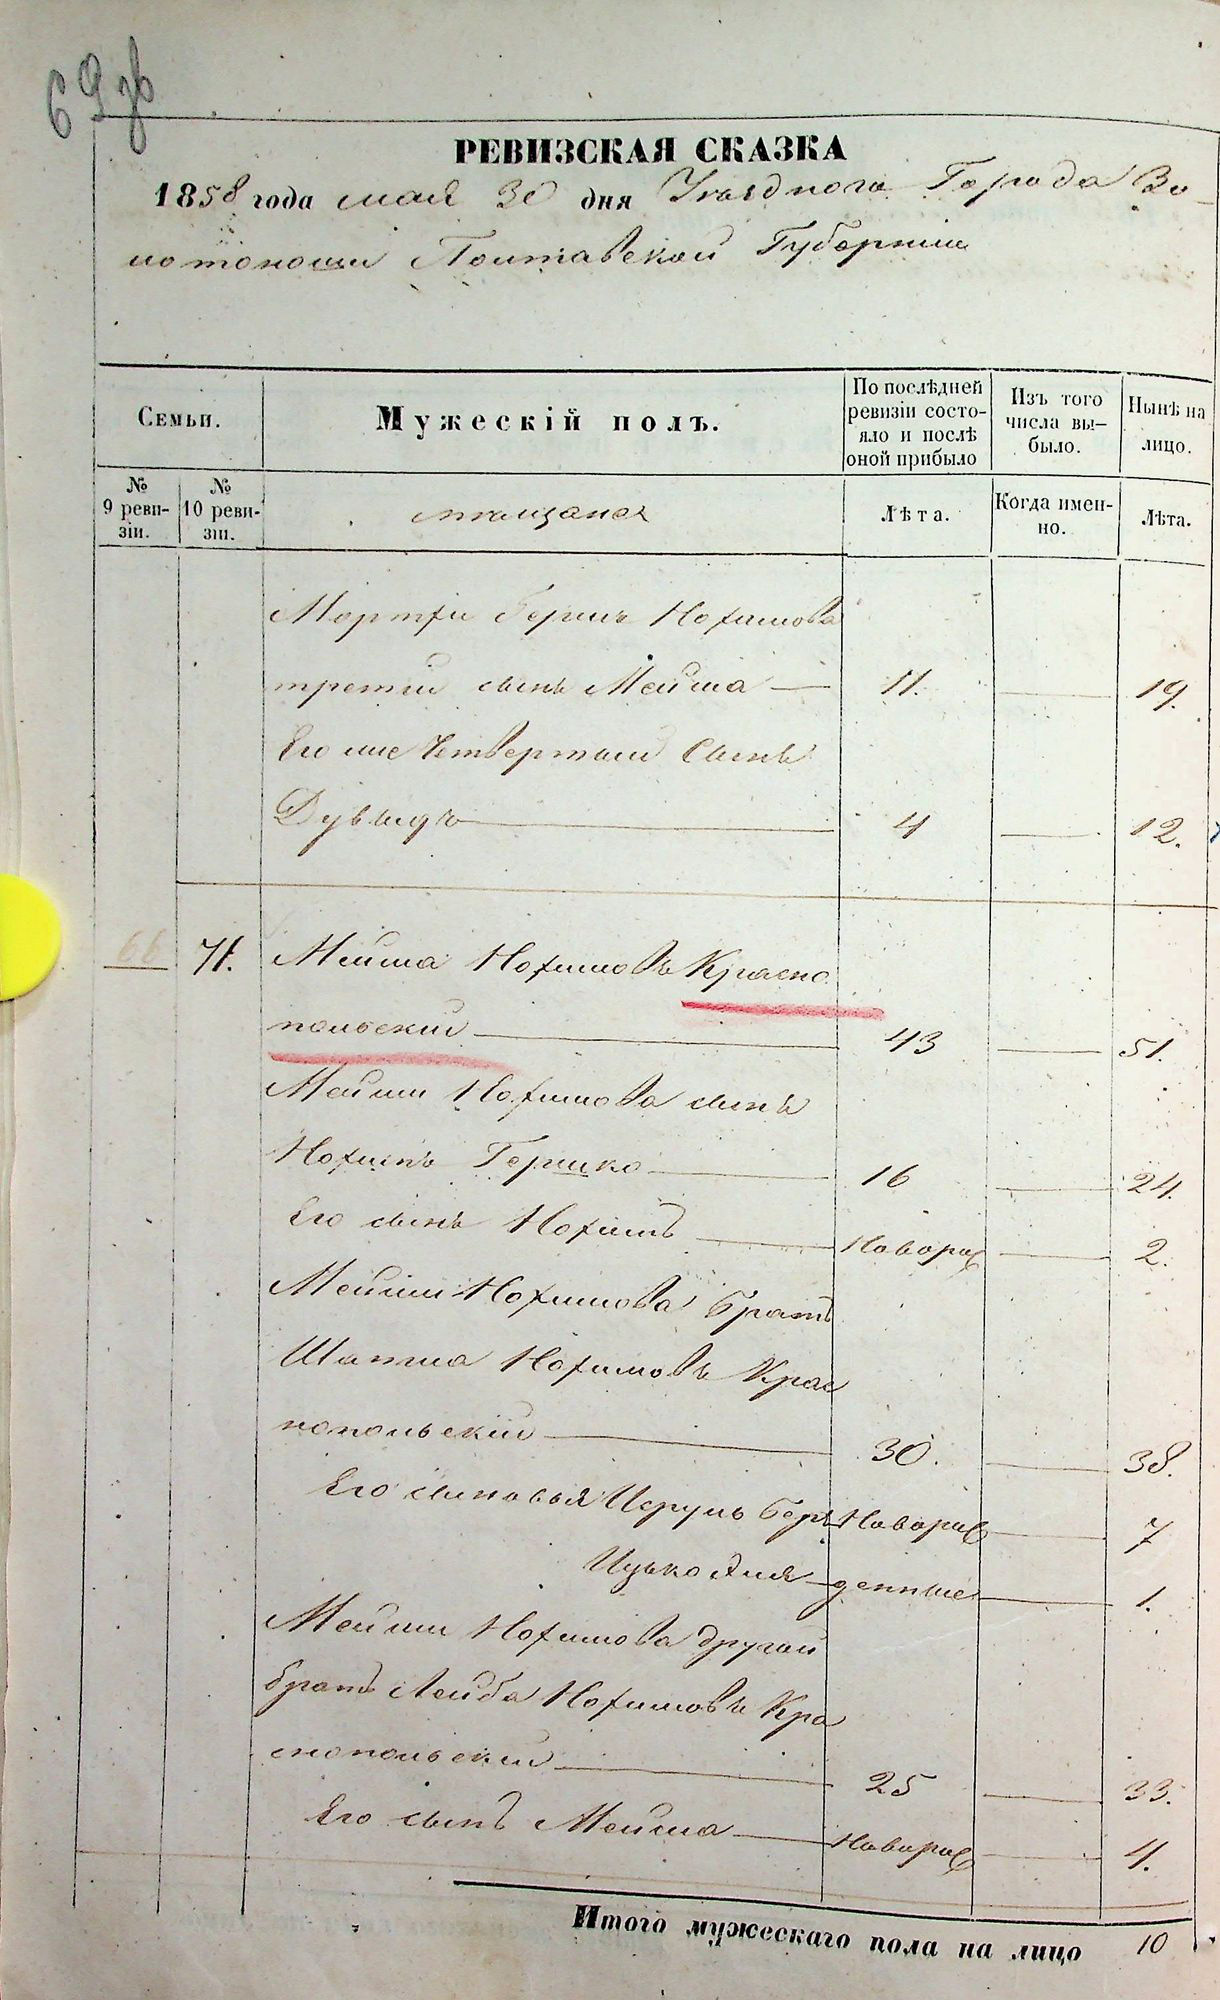 69 зв
РЕВИЗСКАЯ СКАЗКА
1858 года мая 30 дня Уѣзднаго Города Зо
лотоноши Полтавской Губерніи
Семьи.
Мужескій полъ.
По послѣдней
ревизіи состо-
яло и послѣ
оной прибыло
Изъ того
числа вы-
было.
Нынѣ на
лицо.
№
9 реви-
зіи.
№
10 реви-
зіи.
мѣщанъ
Лѣта.
Когда имен-
но.
Лѣта.
Мортхи Берки Нохимова
третій сынъ Мейша — 11. — 19.
Его же Четвертый Сынъ
Дувыдъ — 4 — 12.
66 71. Мейша Нохимовъ Красно
польскій — 43 — 51.
Мейши Нохимова сынъ
Нохимъ Гершко — 16 — 24.
Его сынъ Нохимъ — Новорож — 2.
Мейши Нохимова братъ
Шапша Нохимовъ Крас
нопольскій — 30. — 38.
Его сыновья Исруль Беръ Новорож — 7
Ицько Лия — денные — 1.
Мейши Нохимова другой
братъ Лейба Нохимовъ Кра
снопольскій — 25 — 33.
Его сынъ Мейша — Новорож — 4.
Итого мужескаго пола на лицо 10